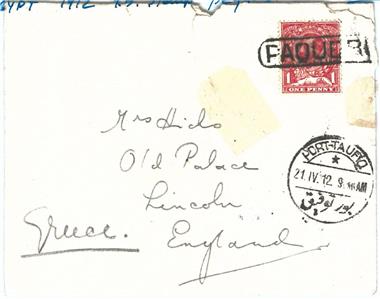 1912
PAQUEB
1 1
ONE PENNY
Mrs Hicks
Old Palace
Lincoln
England
Greece.
PORT-TAUFIQ
21.IV.12. 9. AM
بور توفيق